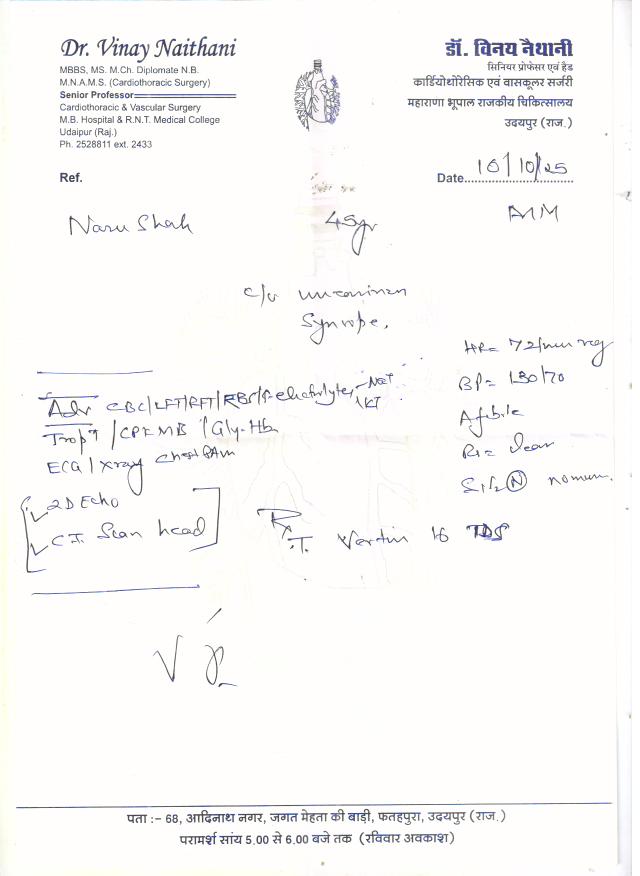 Dr. Vinay Naithani
MBBS, MS. M.Ch. Diplomate N.B.
M.N.A.M.S. (Cardiothoracic Surgery)
Senior Professor
Cardiothoracic & Vascular Surgery
M.B. Hospital & R.N.T. Medical College
Udaipur (Raj.)
Ph. 2528811 ext. 2433
डॉ. विनय नैथानी
सिनियर प्रोफेसर एवं हैड
कार्डियोथोरेसिक एवं वासकूलर सर्जरी
महाराणा भूपाल राजकीय चिकित्सालय
उदयपुर (राज.)
Ref.
Date 16/10/25
Naru Shah 45yr
c/o
Syncope,
HR= 72/min reg
BP= 130/70
Afebrile
R1= Clear
S1/S2 (N) no mum.
Adv CBC/LFT/RFT/RBS/S-electrolytes
Trop T /CPKMB /Gly-Hb
ECG/Xray Chest PA
2D Echo
C.T. Scan head
Rx
T. Vertin 16 TDS
पता :- 68, आदिनाथ नगर, जगत मेहता की बाड़ी, फतहपुरा, उदयपुर (राज.)
परामर्श सांय 5.00 से 6.00 बजे तक (रविवार अवकाश)